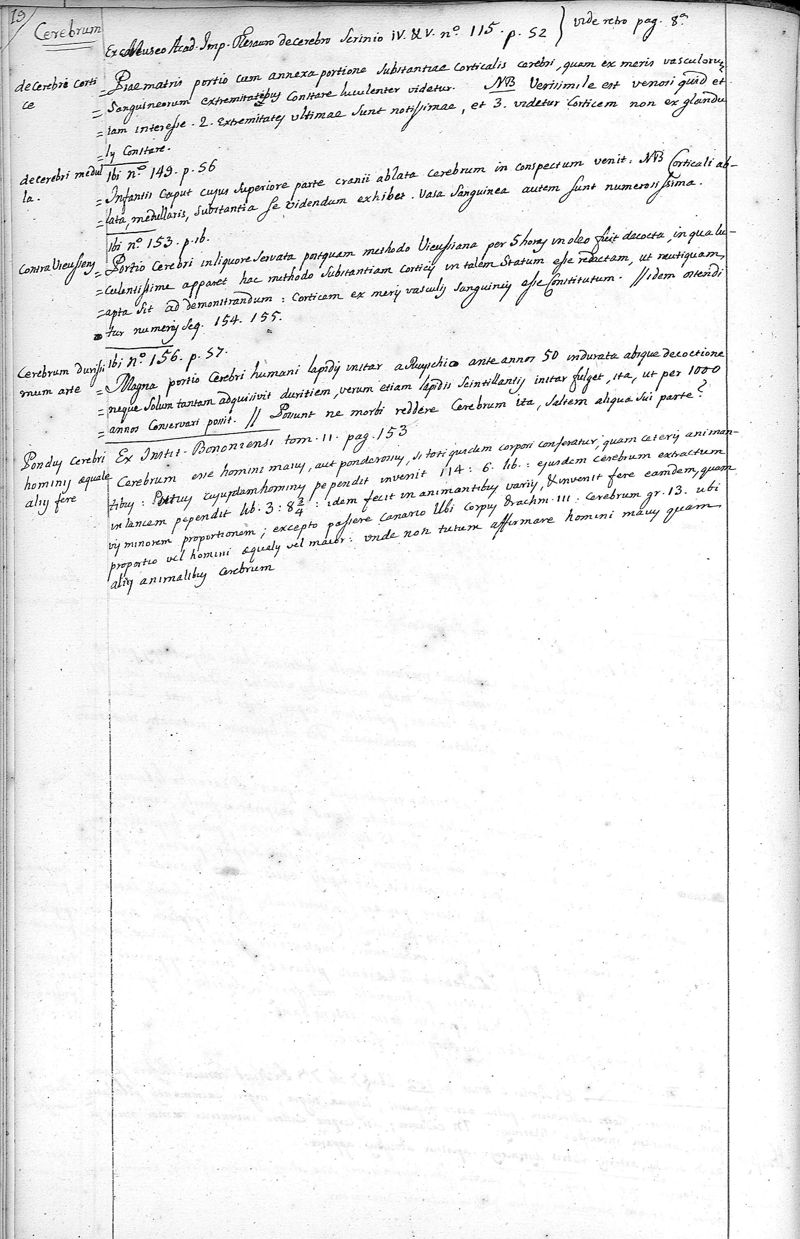 19
Cerebrum
Ex Museo Acad. Imp. Thesauro de cerebro Scrinio IV. & V. nº. 115. p. 52 } vide retro pag. 8ª
de Cerebri Corti
ce
= Piae matris portio cum annexa portione Substantiae Corticalis cerebri, quam ex meris vasculorũ
= Sanguineorum extremitatibus Constare luculenter videtur. NB Verisimile est venosi quid et
= iam interesse. 2. Extremitates ultimae Sunt notissimae, et 3. videtur Corticem non ex glandu
= lis Constare.
de cerebri medul
la.
Ibi nº. 149. p. 56
= Infantis Caput cujus Superiore parte cranii ablata Cerebrum in conspectum venit: NB Corticali ab-
= lata, medullaris, Substantia se videndum exhibet. Vasa Sanguinea autem sunt numerosissima.
Ibi nº 153. p. ib.
Contra Vieussens
= Portio Cerebri in liquore Servata postquam methodo Vieussiana per 5 horas in oleo fuit decocta, in qua lu-
= culentissime apparet hac methodo Substantiam Corticis in talem Statum esse redactam, ut neutiquam
= apta Sit ad demonstrandum: Corticem ex meris vasculis Sanguineis esse Constitutum. // idem ostendi
tur numeris Seq. 154. 155.
Cerebrum durissi
mum arte
Ibi nº. 156. p. 57.
= Magna portio Cerebri humani lapidis instar a Ruyschio ante annos 50 indurata absque decoctione
= neque Solum tantam adquisivit duritiem, verum etiam lapidis Scintillantis instar fulget, ita, ut per 1000
= annos Conservari possit. // Possunt ne morbi reddere Cerebrum ita, Saltem aliqua Sui parte?
Pondus Cerebri
hominis aequale
aliis fere
Ex Instit. Bononiensi tom. II. pag. 153
Cerebrum esse homini maius, aut ponderosius, si toti quidem corpori conferatur, quam caeteris animan-
tibus: cujusdam hominis pependit invenit 114: 6. lib: ejusdem Cerebrum extractum
in lancem pependit lib. 3: 8 2/4: idem fecit in animantibus variis, & invenit fere eamdem, quam
vis minorem proportionem; excepto passere Canario Ubi Corpus drachm. III: Cerebrum gr. 13. ubi
proportio vel homini aequalis vel maior: unde non tutum affirmare homini maius quam
aliis animalibus Cerebrum